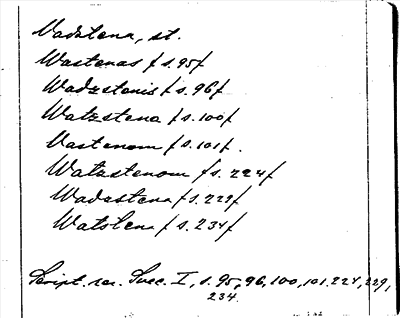 Vadstena, st.
Wastenas /s.95/
Wadzstenis /s.96/
Watzstena /s.100/
Vastenom /s.101/.
Watzstenom /s.224/
Wadzstena /s.229/
Watstena /s.234/
Script. rer. Svec. I, s.95, 96, 100, 101, 224, 229,
234.